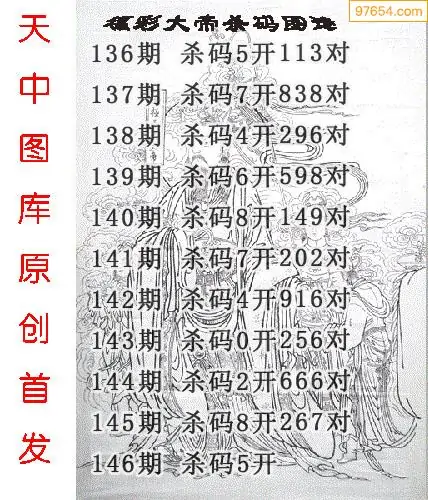 97654.com
福彩大帝杀码图迷
天中图库原创首发
136期 杀码5开113对
137期 杀码7开838对
138期 杀码4开296对
139期 杀码6开598对
140期 杀码8开149对
141期 杀码7开202对
142期 杀码4开916对
143期 杀码0开256对
144期 杀码2开666对
145期 杀码8开267对
146期 杀码5开